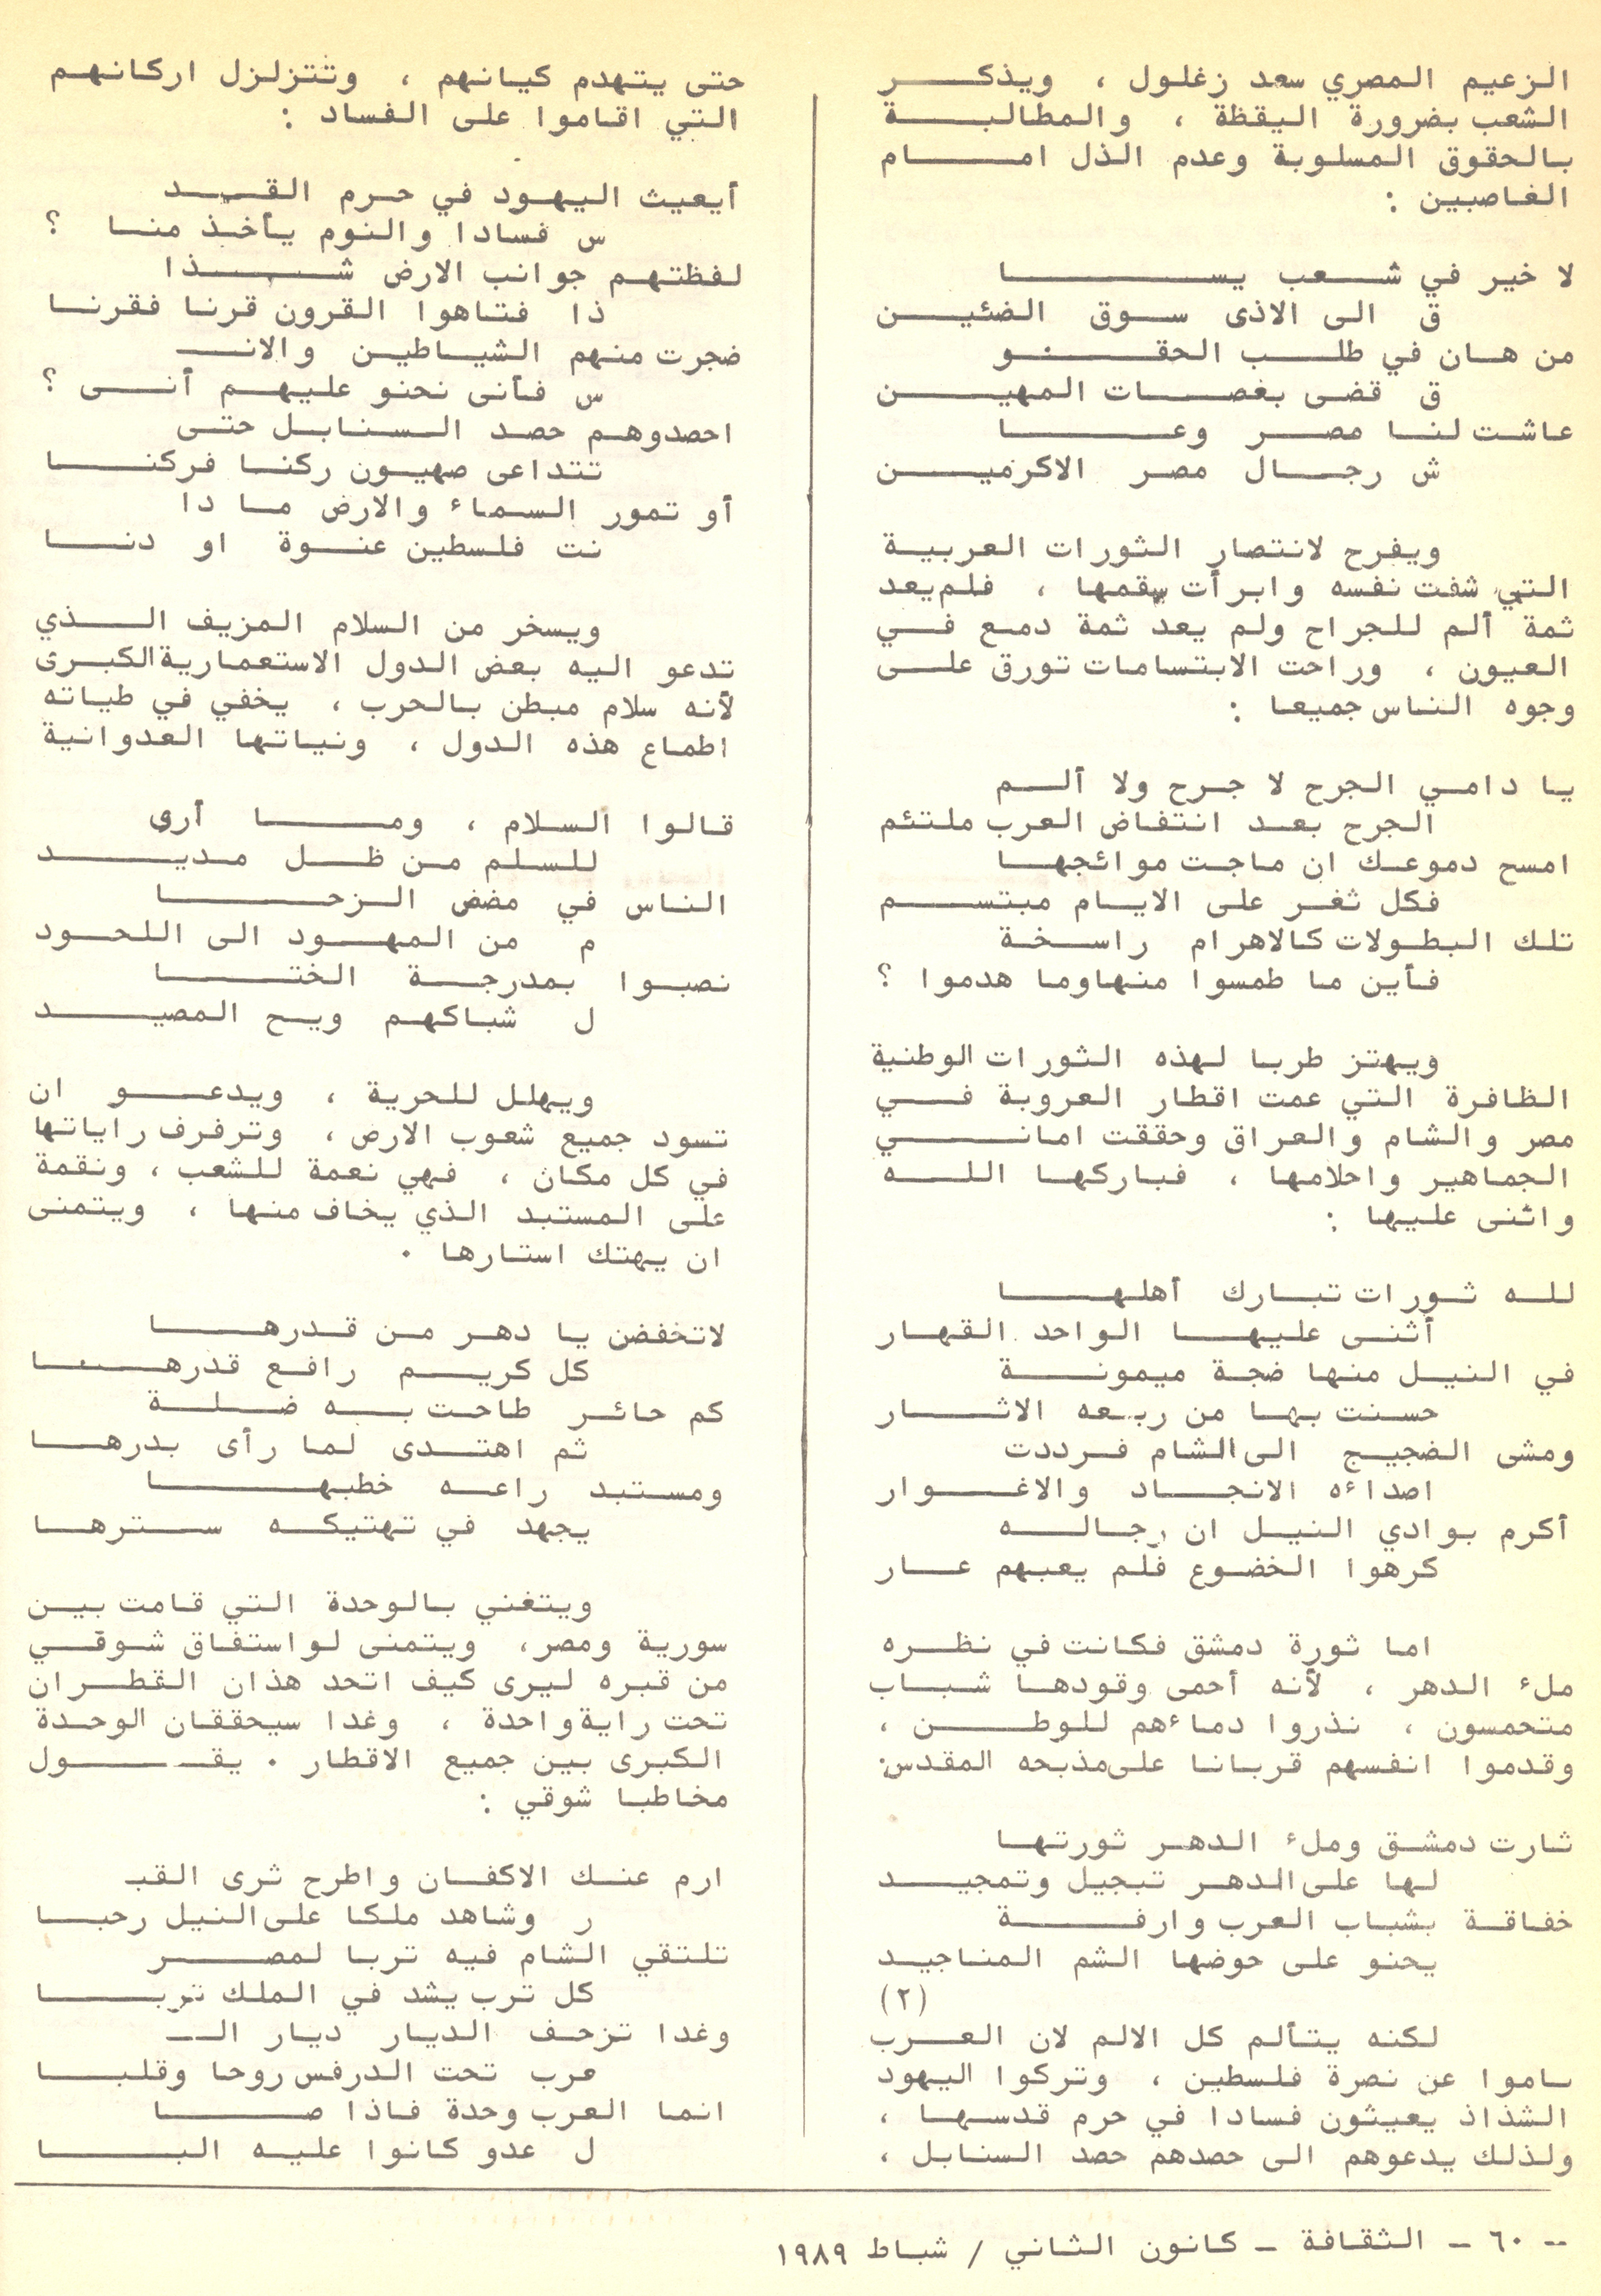 الزعيم المصري سعد زغلول ، ويذكر
الشعب بضرورة اليقظة ، والمطالبة
بالحقوق المسلوبة وعدم الذل امام
الغاصبين :
لا خير في شعب يسا
ق الى الاذى سوق الضئين
من هان في طلب الحقو
ق قضى بغصات المهين
عاشت لنا مصر وعا
ش رجال مصر الاكرمين
ويفرح لانتصار الثورات العربية
التي شفت نفسه وابرأت سقمها ، فلم يعد
ثمة ألم للجراح ولم يعد ثمة دمع في
العيون ، وراحت الابتسامات تورق على
وجوه الناس جميعا :
يا دامي الجرح لا جرح ولا ألم
الجرح بعد انتفاض العرب ملتئم
امسح دموعك ان ماجت موائجها
فكل ثغر على الايام مبتسم
تلك البطولات كالاهرام راسخة
فأين ما طمسوا منها وما هدموا ؟
ويهتز طربا لهذه الثورات الوطنية
الظافرة التي عمت اقطار العروبة في
مصر والشام والعراق وحققت اماني
الجماهير واحلامها ، فباركها الله
واثنى عليها :
لله ثورات تبارك أهلها
أثنى عليها الواحد القهار
في النيل منها ضجة ميمونة
حسنت بها من ربعه الاثار
ومشى الضجيج الى الشام فرددت
اصداءه الانجاد والاغوار
أكرم بوادي النيل ان رجاله
كرهوا الخضوع فلم يعبهم عار
اما ثورة دمشق فكانت في نظره
ملء الدهر ، لأنه أحمى وقودها شباب
متحمسون ، نذروا دماءهم للوطن ،
وقدموا انفسهم قربانا على مذبحه المقدس:
ثارت دمشق وملء الدهر ثورتها
لها على الدهر تبجيل وتمجيد
خفاقة بشباب العرب وارفة
يحنو على حوضها الشم المناجيد
(٢)
لكنه يتألم كل الالم لان العرب
ناموا عن نصرة فلسطين ، وتركوا اليهود
الشذاذ يعيثون فسادا في حرم قدسها ،
ولذلك يدعوهم الى حصدهم حصد السنابل ،
حتى يتهدم كيانهم ، وتتزلزل اركانهم
التي اقاموا على الفساد :
أيعيث اليهود في حرم القد
س فسادا والنوم يأخذ منا ؟
لفظتهم جوانب الارض شذا
ذا فتاهوا القرون قرنا فقرنا
ضجرت منهم الشياطين والانـ
س فأنى نحنو عليهم أنى ؟
احصدوهم حصد السنابل حتى
تتداعى صهيون ركنا فركنا
أو تمور السماء والارض ما دا
نت فلسطين عنوة او دنا
ويسخر من السلام المزيف الذي
تدعو اليه بعض الدول الاستعمارية الكبرى
لأنه سلام مبطن بالحرب ، يخفي في طياته
اطماع هذه الدول ، ونياتها العدوانية
قالوا السلام ، وما أرى
للسلم من ظل مديد
الناس في مضض الزحا
م من المهود الى اللحود
نصبوا بمدرجة الختا
ل شباكهم ويح المصيد
ويهلل للحرية ، ويدعو ان
تسود جميع شعوب الارض ، وترفرف راياتها
في كل مكان ، فهي نعمة للشعب ، ونقمة
على المستبد الذي يخاف منها ، ويتمنى
ان يهتك استارها ٠
لاتخفضن يا دهر من قدرها
كل كريم رافع قدرها
كم حائر طاحت به ضلة
ثم اهتدى لما رأى بدرها
ومستبد راعه خطبها
يجهد في تهتيكه سترها
ويتغني بالوحدة التي قامت بين
سورية ومصر، ويتمنى لو استفاق شوقي
من قبره ليرى كيف اتحد هذان القطران
تحت راية واحدة ، وغدا سيحققان الوحدة
الكبرى بين جميع الاقطار ٠ يقول
مخاطبا شوقي :
ارم عنك الاكفان واطرح ثرى القبـ
ر وشاهد ملكا على النيل رحبا
تلتقي الشام فيه تربا لمصر
كل ترب يشد في الملك تربا
وغدا تزحف الديار ديار الـ
عرب تحت الدرفس روحا وقلبا
انما العرب وحدة فاذا صا
ل عدو كانوا عليه البا
-- ٦٠ - الثقافة - كانون الثاني / شباط ١٩٨٩